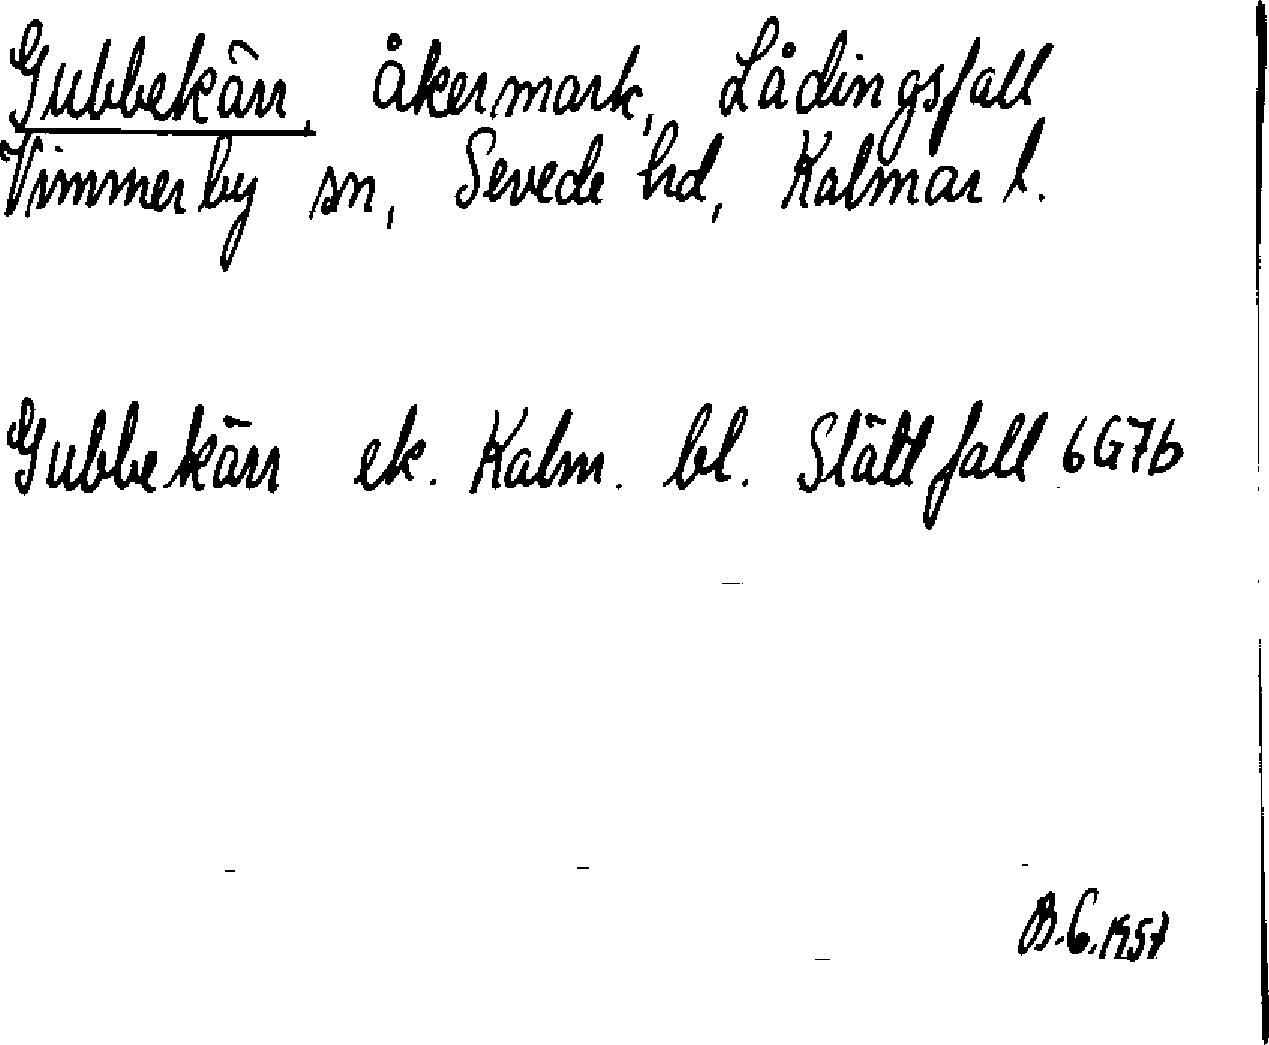 Gubbekärr, åkermark, Lådingsfall
Vimmerby sn, Sevede hd, Kalmar l.
Gubbekärr ek. Kalm. bl. Slätfall 6G7b
B.G. 1957